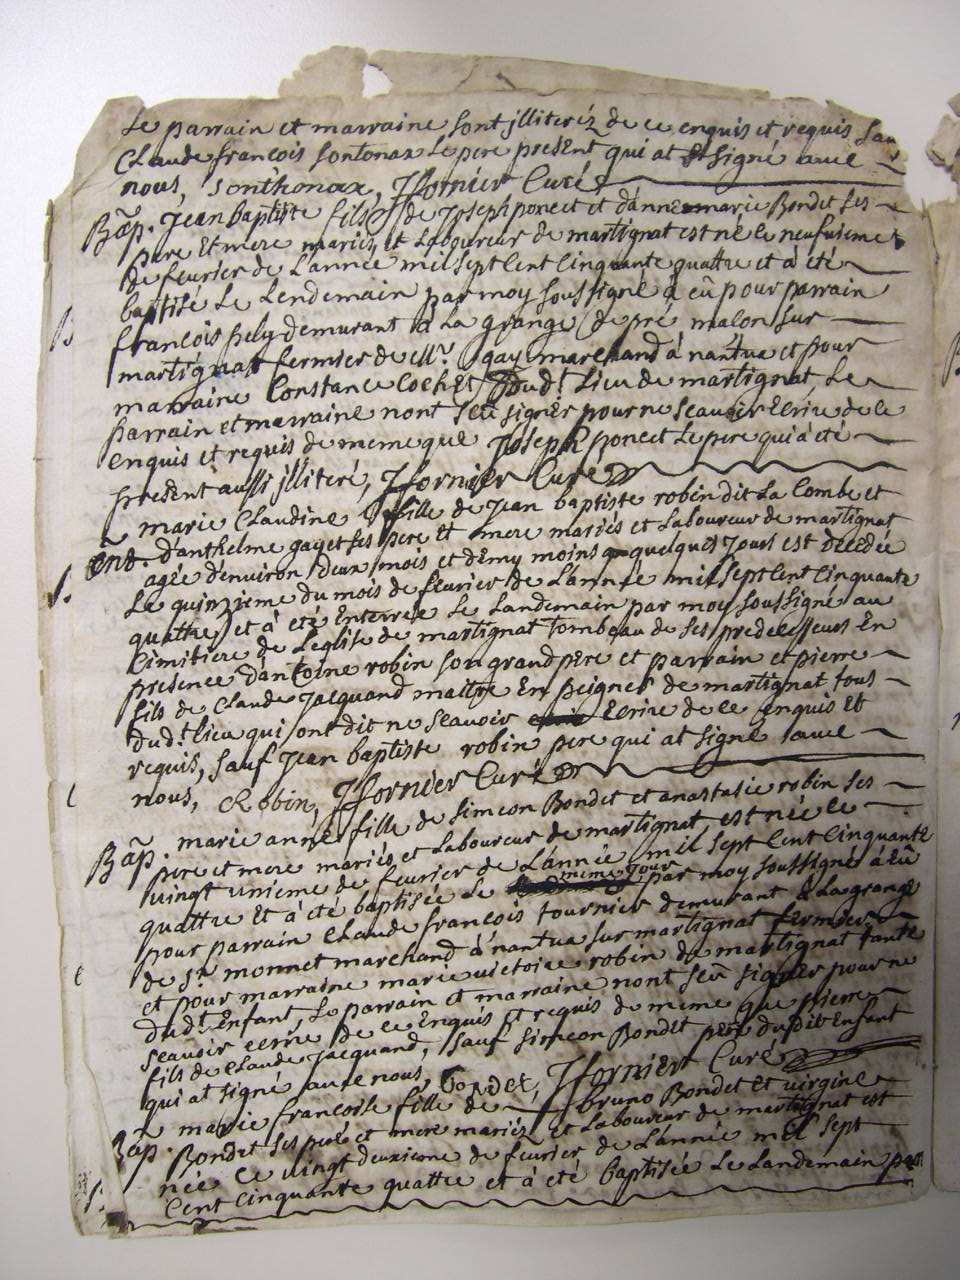 Le parrain et marraine sont jlliteréz de ce enquis et requis sauf
Claude francois sontonax Le pere present qui at signé avec
nous, Sonthonax, Jfornier Curé
Bãp. Jean baptiste fils de Joseph poncet et d'anne marie Bondet ses
pere Et mere mariez et Laboureur de martignat est né le neufuieme
de feurier de L'année mil sept Cent Cinquante quattre et à été
baptisé Le Lendemain par moy soussigné à eû pour parrain
francois hely demurant à La grange de pré malon sur
martignat fermier de gay marchand à nantua et pour
marraine Constance Cochet dud.t Lieu de martignat, Le
parrain et marraine nont sceu signér pour ne sçauoir Ecrire de ce
enquis et requis de meme que Joseph poncet Le pere qui à été
present aussi jlliteré, Jfornier Curé
marie Claudine fille de Jean baptiste robin dit La Combe et
Ent. d'anthelme gayet ses pere Et mere mariés et Laboureur de martignat
agée d'enuiron deux mois et demy moins quelques Jours est decedée
Le quinzieme du mois de feurier de L'année mil sept Cent Cinquante
quattre et à été Enterrée Le Landemain par moy soussigné au
Cimitiere de L'eglise de martignat tombeau de ses predecesseurs En
presence d'antoine robin son grand pere et parrain et pierre
fils de Claude Jacquand maitre En peignes de martignat tous
dud.t lieu qui ont dit ne sçauoir Ecrire de ce enquis Et
requis, sauf Jean baptiste robin pere qui at signé avec
nous, C Robin, Jfornier Curé
Bãp. marie anne fille de simeon Bondet et anastasie robin ses
pere et mere mariés et Laboureur de martignat est née le
vingt unieme de feurier de L'année mil sept Cent Cinquante
quattre Et à été baptisée Le meme Jour par moy soussigné à Eû
pour parrain Claude francois tournier demurant à La grange
de S.r monnet marchand à nantua sur martignat fermier
et pour marraine marie victoire robin de martignat tante
dud.t Enfant, Le parrain et marraine nont sceu signér pour ne
sçauoir ecrire de ce Enquis et requis de meme que pierre
fils de Claude Jacquand, sauf simeon Bondet pere dudit Enfant
qui at signé avec nous, Bondet, Jfornier Curé
marie francoise fille de Bruno Bondet Et virgine
Bãp. Bondet ses pere et mere mariéz et Laboureur de martignat est
née Le vingt deuxieme de feurier de L'année mil sept
Cent Cinquante quattre et à été baptisée Le Landemain par